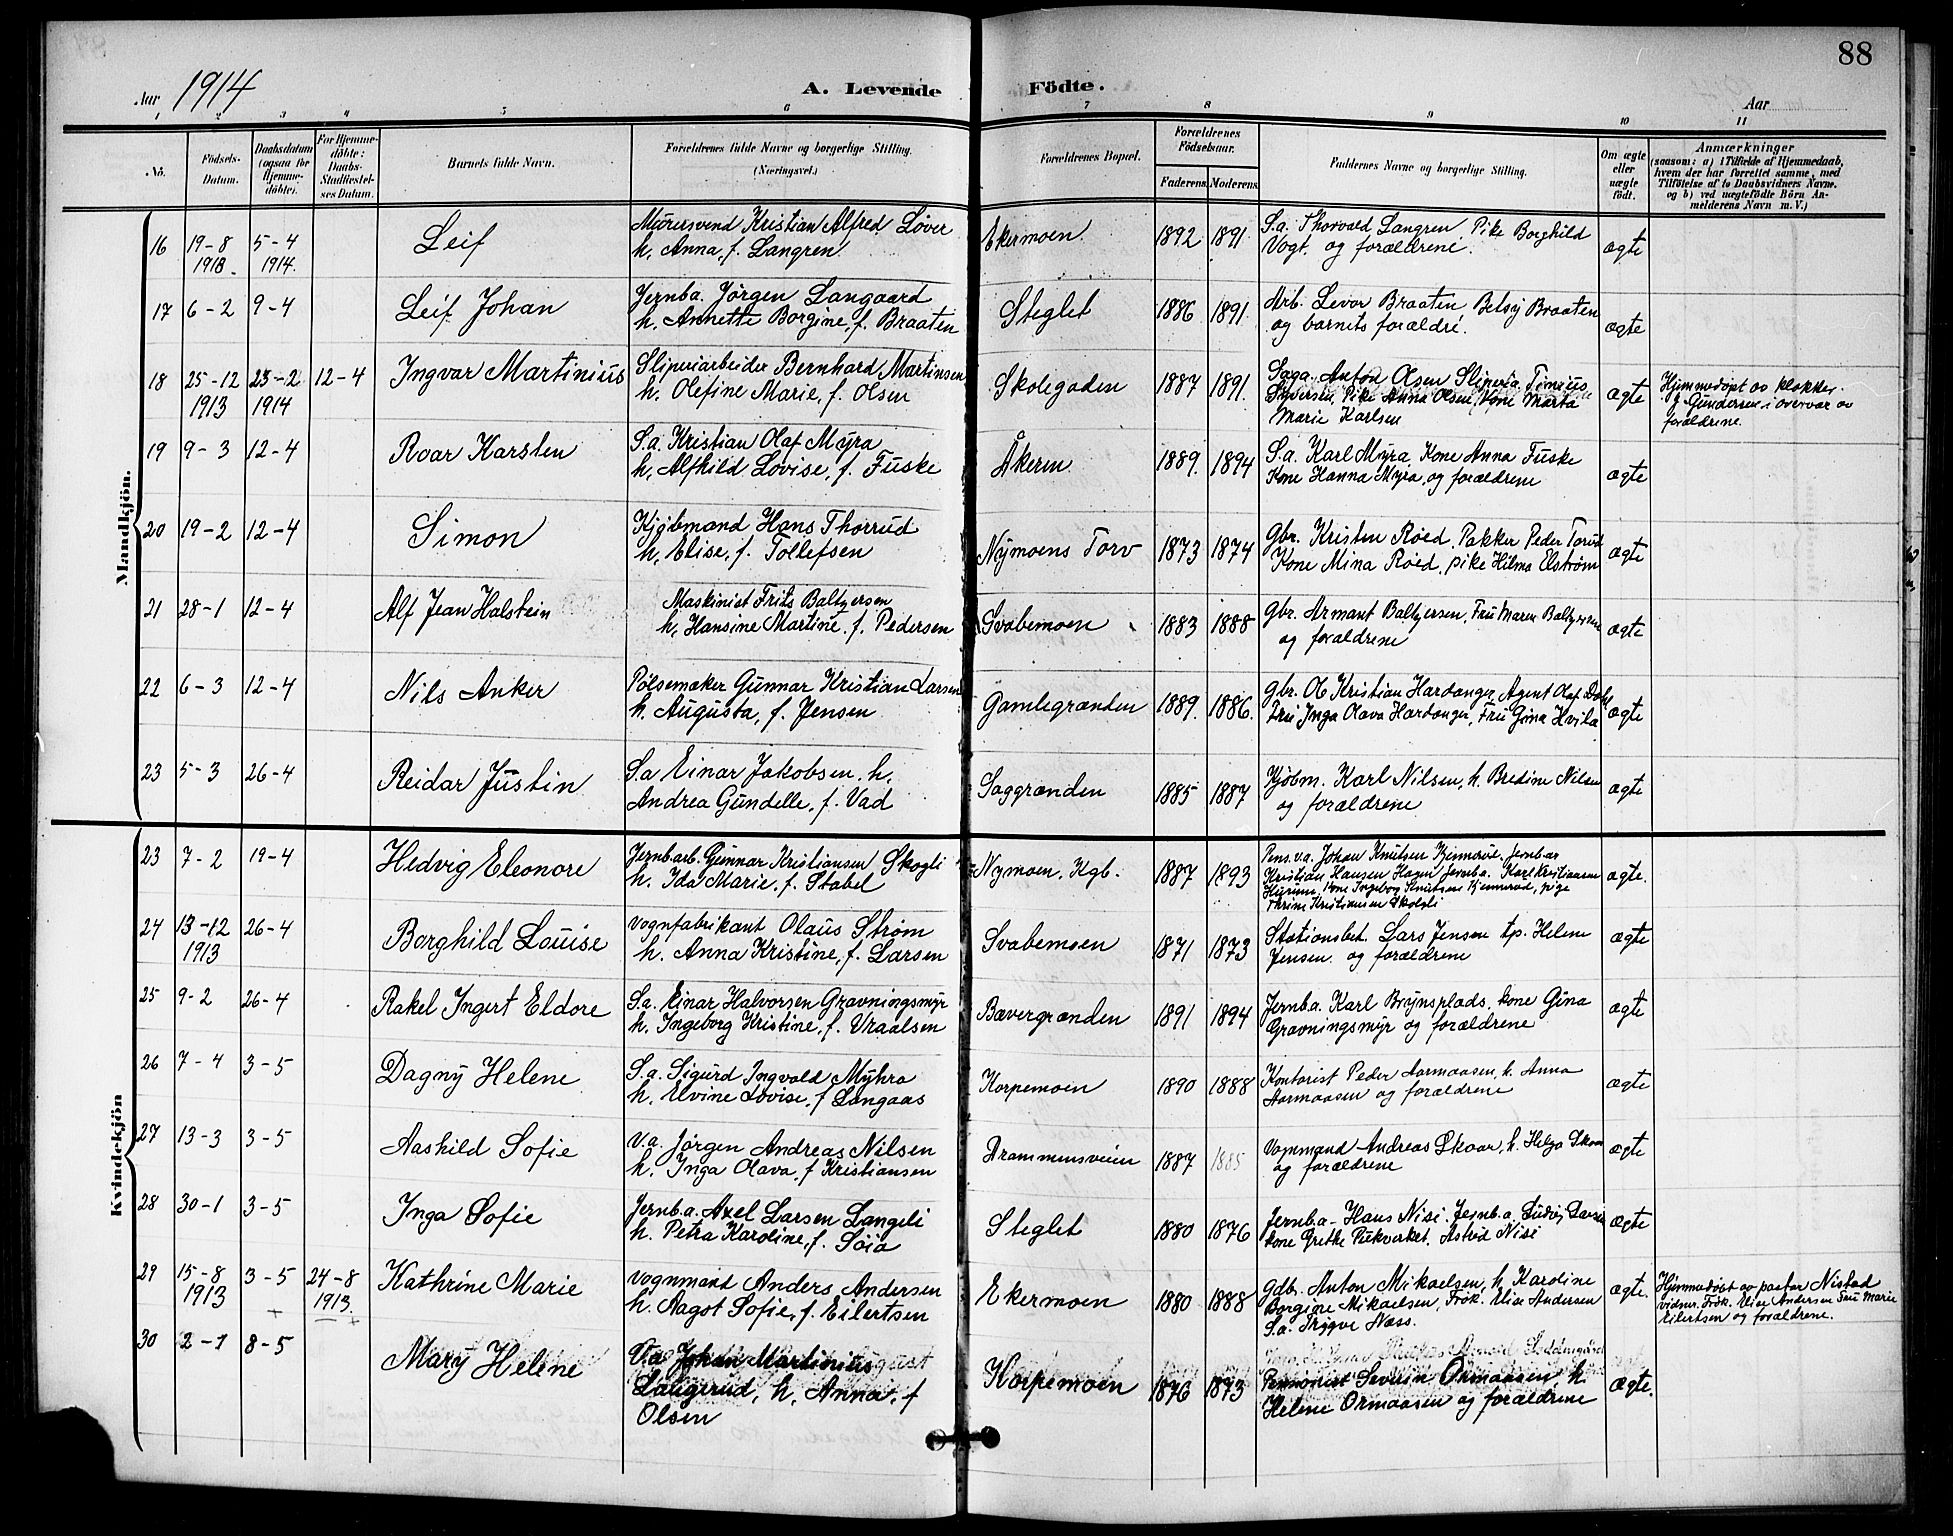 88
Aar 1914
A. Levende Födte.
Aar
1 2 3 4 5 6 7 8 9 10 11
No.
Födsels-Datum.
Daabsdatum (ogsaa for Hjemmedöbte).
For Hjemmedöbte: Daabs-Stadfæstelses Datum.
Barnets fulde Navn.
Forældrenes fulde Navne og borgerlige Stilling. (Næringsvei.)
Forældrenes Bopæl.
Forældrenes Födselsaar.
Faderens. Moderens.
Faddernes Navne og borgerlige Stilling.
Om ægte eller uægte født.
Anmærkninger
(saasom: a) i Tilfælde af Hjemmedaab, hvem der har forrettet samme, med Tilföielse af to Daabsvidners Navne. og b) ved uægtefödte Börn Anmelderens Navn m. V.)
Mandkjön.
16 19-8 1918. 5-4 1914. Leif
Murersvend Kristian Alfred Løver
h. Anna, f. Langren
Ekermoen. 1892 1891
S.a. Thorvald Langren. Pike Borghild
Vogt. og forældrene.
ægte
17 6-2 9-4 Leif Johan
Jernba. Jørgen Langaard
h. Annette Borgine, f. Braaten
Steglet 1886 1891
Arb. Levor Braaten Betsy Braaten
og barnets forældre.
ægte
18 25-12 1913 23-2 1914 12-4 Ingvar Martinius
Sliperiarbeider Bernhard Martinsen
h. Olefine Marie, f. Olsen
Skolegaden 1887 1891
Saga. Anton Olsen
Syversen, Pike Anna Olsen, Kone Marta
Marie Karlsen
ægte
Hjemmedøpt av klokker
Gundersen i overvær av
forældrene.
19 9-3 12-4 Roar Karsten
S.a. Kristian Olaf Myra
h. Alfhild Lovise, f. Fuske
Åkeren 1889. 1894
S.a. Karl Myra, Kone Anna Fuske
Kone Hanna Myra, og forældrene
ægte
20 19-2 12-4 Simon
Kjøbmand Hans Thorrud
h. Elise, f. Tollefsen
Nymoens Torv 1873 1874
Gbr. Kristen Røed, Pakker Peder Torud
Kone Mina Røed, pike Hilma Elstrøm
ægte
21 28-1 12-4 Alf Jean Halstein
Maskinist Frits Baltzersen
h. Hansine Martine, f. Pedersen
Svabemoen 1883 1888
Gbr. Armant Baltzersen, Fru Maren Baltzersen
og forældrene
ægte
22 6-3 12-4 Nils Anker
Pölsemaker Gunnar Kristian Larsen
h. Augusta, f. Jensen
Gamlegrænden 1889. 1886.
Gbr. Ole Kristian Hardanger, Agent Olaf
Fru Inga Olava Hardanger, Fru Gina Hvila
ægte
23 5-3 26-4 Reidar Justin
S.a Einar Jakobsen. h.
Andrea Gundelle, f. Vad
Saggrænden 1885 1887
Kjøbm. Karl Nilsen, h. Bredine Nilsen
og forældrene
ægte
Kvindekjön
23 7-2 19-4 Hedvig Eleonore
Jernbarb. Gunnar Kristiansen Skogli
h. Ida Marie, f. Stabel
Nymoen, Kgb. 1887 1893
Pens. v.a. Johan Knutsen Kjennerud, Jernbar
Kristian Hansen Hagen Jernba. Karl Kristiansen
Hurum, Kone Ingeborg Knutsen Kjennerud, pige
Thrine Kristiansen Skogli
ægte.
24 13-12 1913 26-4 Borghild Louise
Vognfabrikant Olaus Strøm
h. Anna Kristine, f. Larsen
Svabemoen 1871 1873
Stationsbet. Lars Jensen tp. Helene
Jensen og forældrene
ægte
25 9-2 26-4 Rakel Ingert Eldore
S.a. Einar Halvorsen Gravningsmyr
h. Ingeborg Kristine, f. Vraalsen
Bævergrænden 1891 1894
Jernba. Karl Brynsplads, kone Gina
Gravningsmyr og forældrene
ægte
26 7-4 3-5 Dagny Helene
S.a. Sigurd Ingvald Myhra
h. Elvine Lovise, f Langaas
Korpemoen 1890 1888
Kontorist Peder Aarmaasen, h. Anna
Aarmaasen og forældrene
ægte
27 13-3 3-5 Aashild Sofie
V.a. Jørgen Andreas Nilsen
h. Inga Olava, f Kristiansen
Drammensveien 1887 1885
Vognmand Andreas Skaar, h. Helga Skaar
og forældrene
ægte
28 30-1 3-5 Inga Sofie
Jernb.a. Axel Larsen Langeli
h. Petra Karoline, f. Söia
Steglet 1880 1876
Jernb.a- Hans Nisi, Jernb.a Ludvig Larsen
kone Grethe Pukverket. Astrid Nisi
ægte
29 15-8 1913 3-5 24-8 1913. Kathrine Marie
Vognmand Anders Andersen
h. Aagot Sofie, f. Eilertsen
Ekermoen 1880 1888
Gdb. Anton Mikaelsen, h. Karoline
Borgine Mikaelsen, Frøk. Elise Andersen
S.a. Trygve Næss.
ægte.
Hjemmedøpt av pastor Nistad
vidner. Frøk. Elise Andersen Fru Marie
Eilertsen og forældrene.
30 2-1 8-5 Mary Helene
V.a Johan Martinius
Laugerud, h. Anna, f
Olsen
Korpemoen 1876 1873
Pensionist Severin Ormaasen h.
Helene Ormaasen og forældrene
ægte.